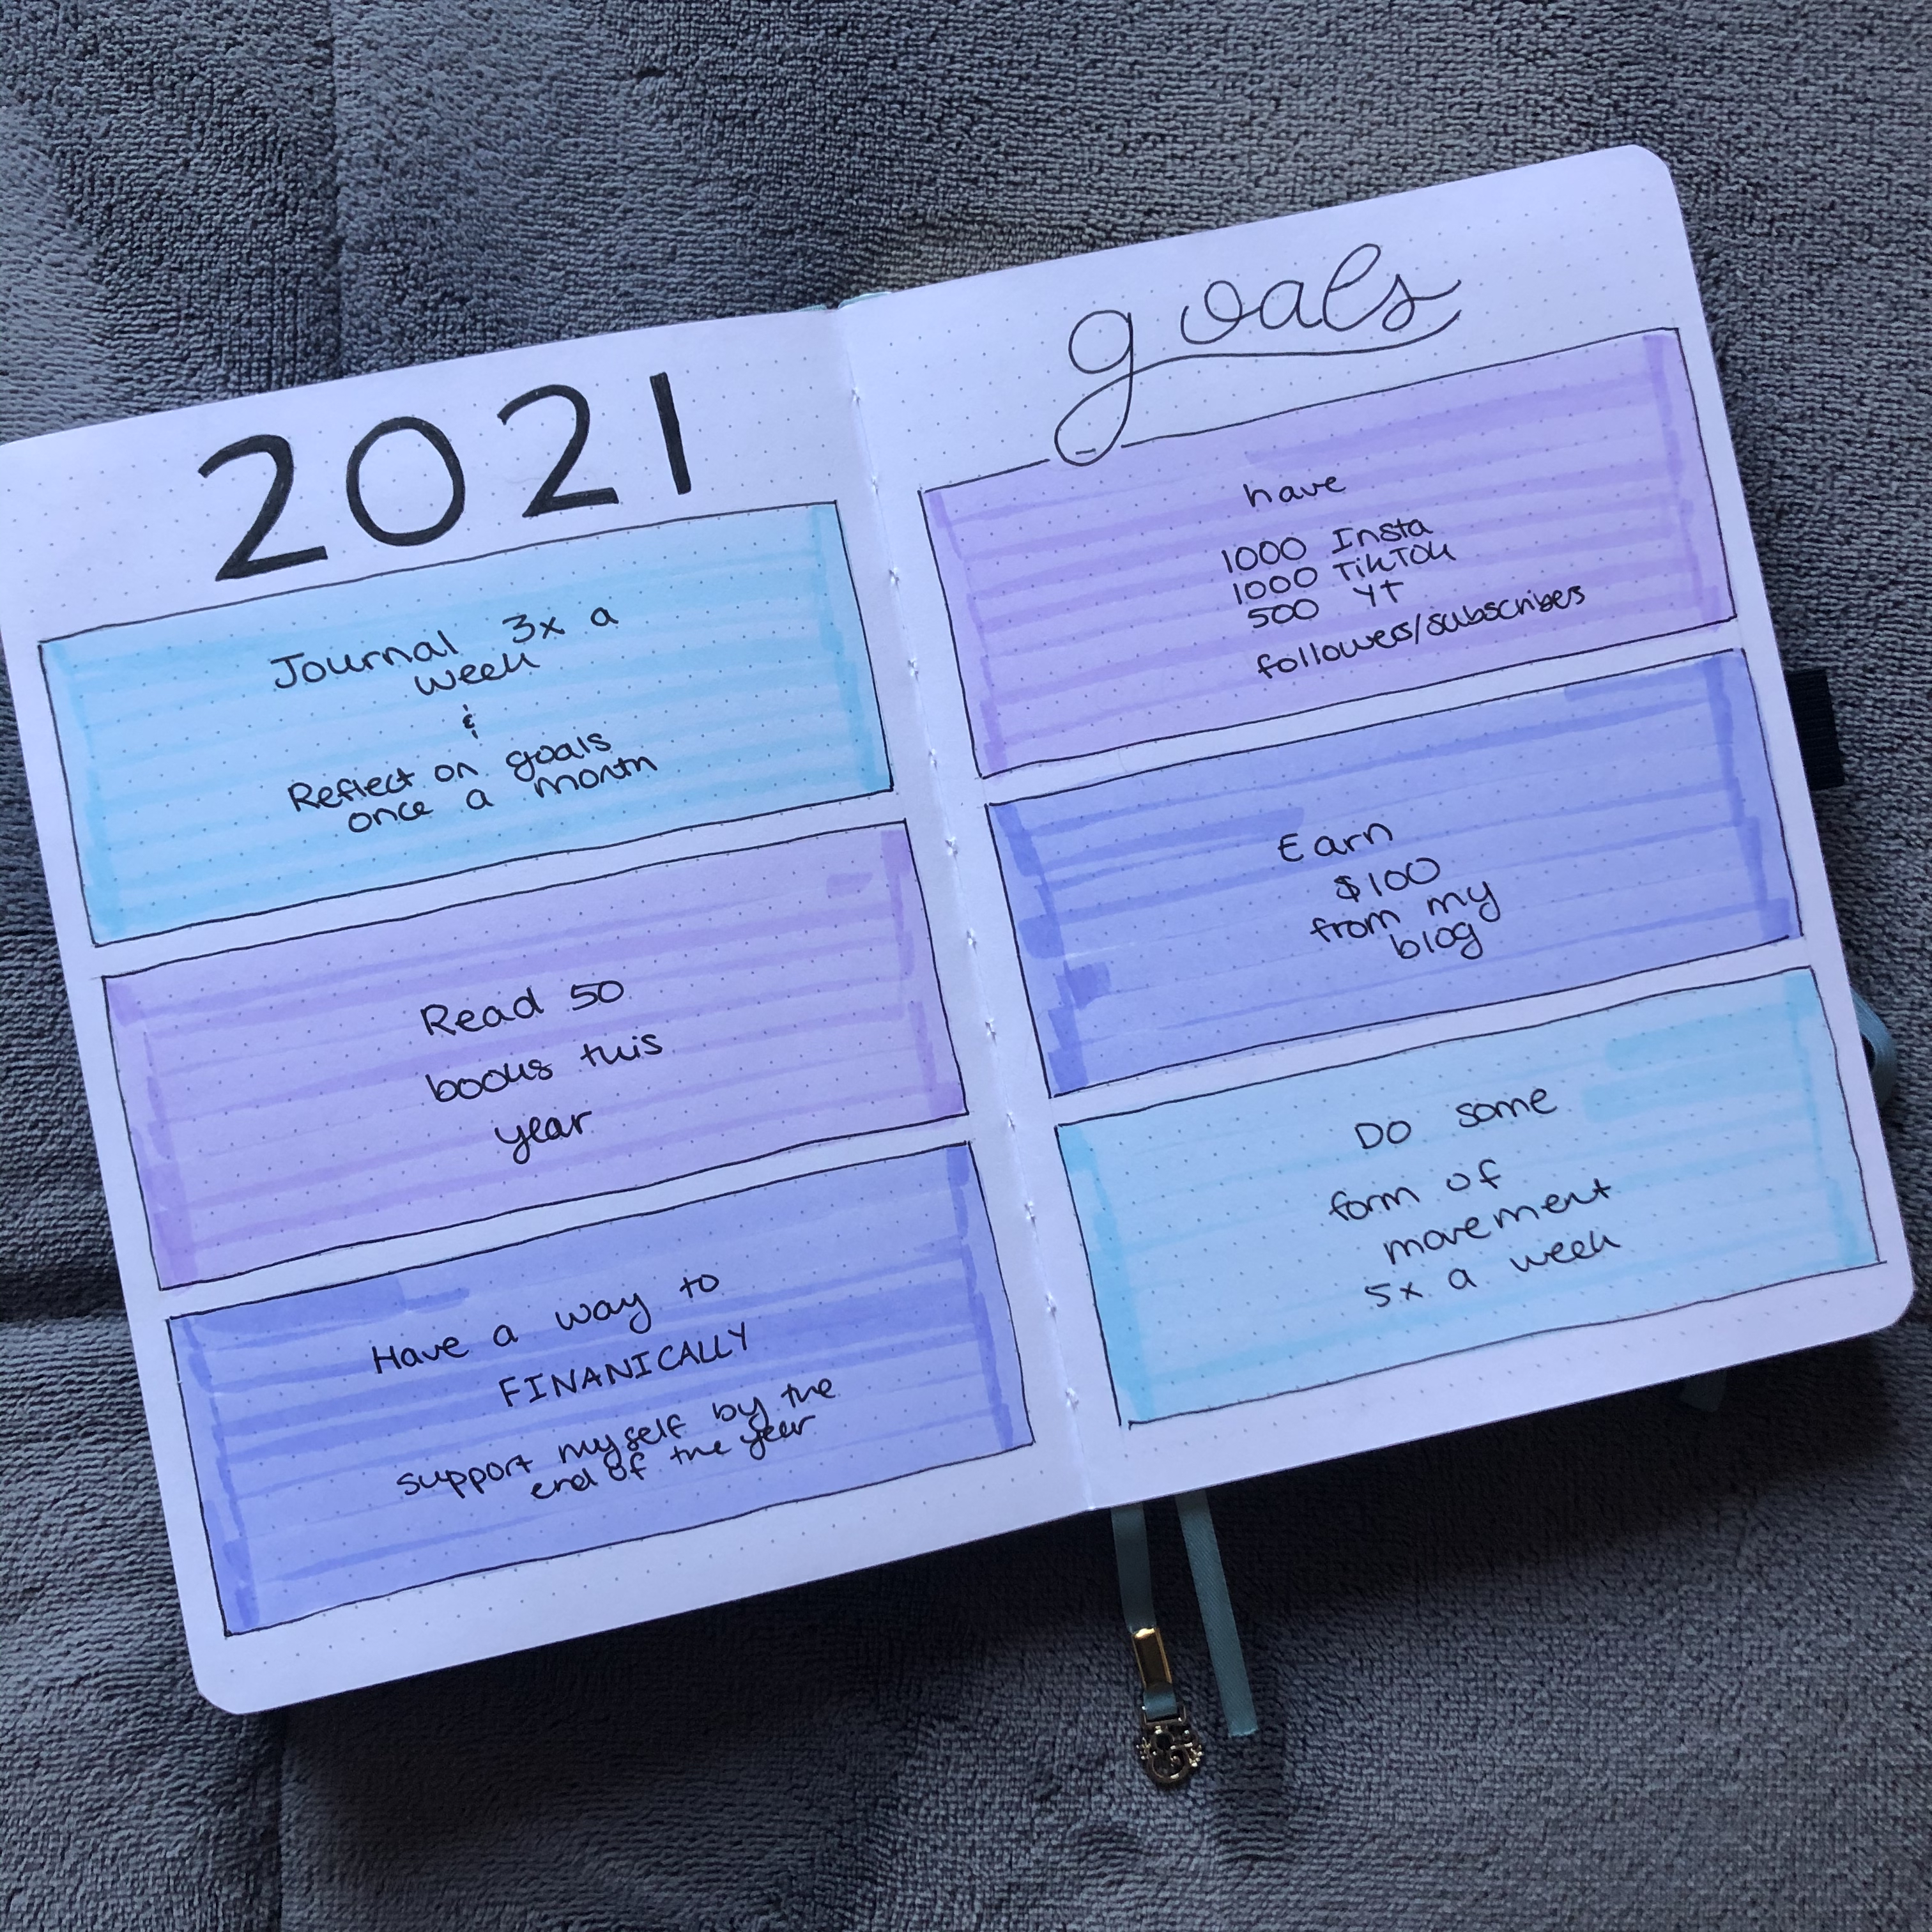 2021
Journal 3x a
week
&
Reflect on goals
once a month
Read 50
books this
year
Have a way to
FINANICALLY
support myself by the
end of the year
goals
have
1000 Insta
1000 TikTok
500 YT
followers/subscribers
Earn
$100
from my
blog
DO some
form of
movement
5x a week